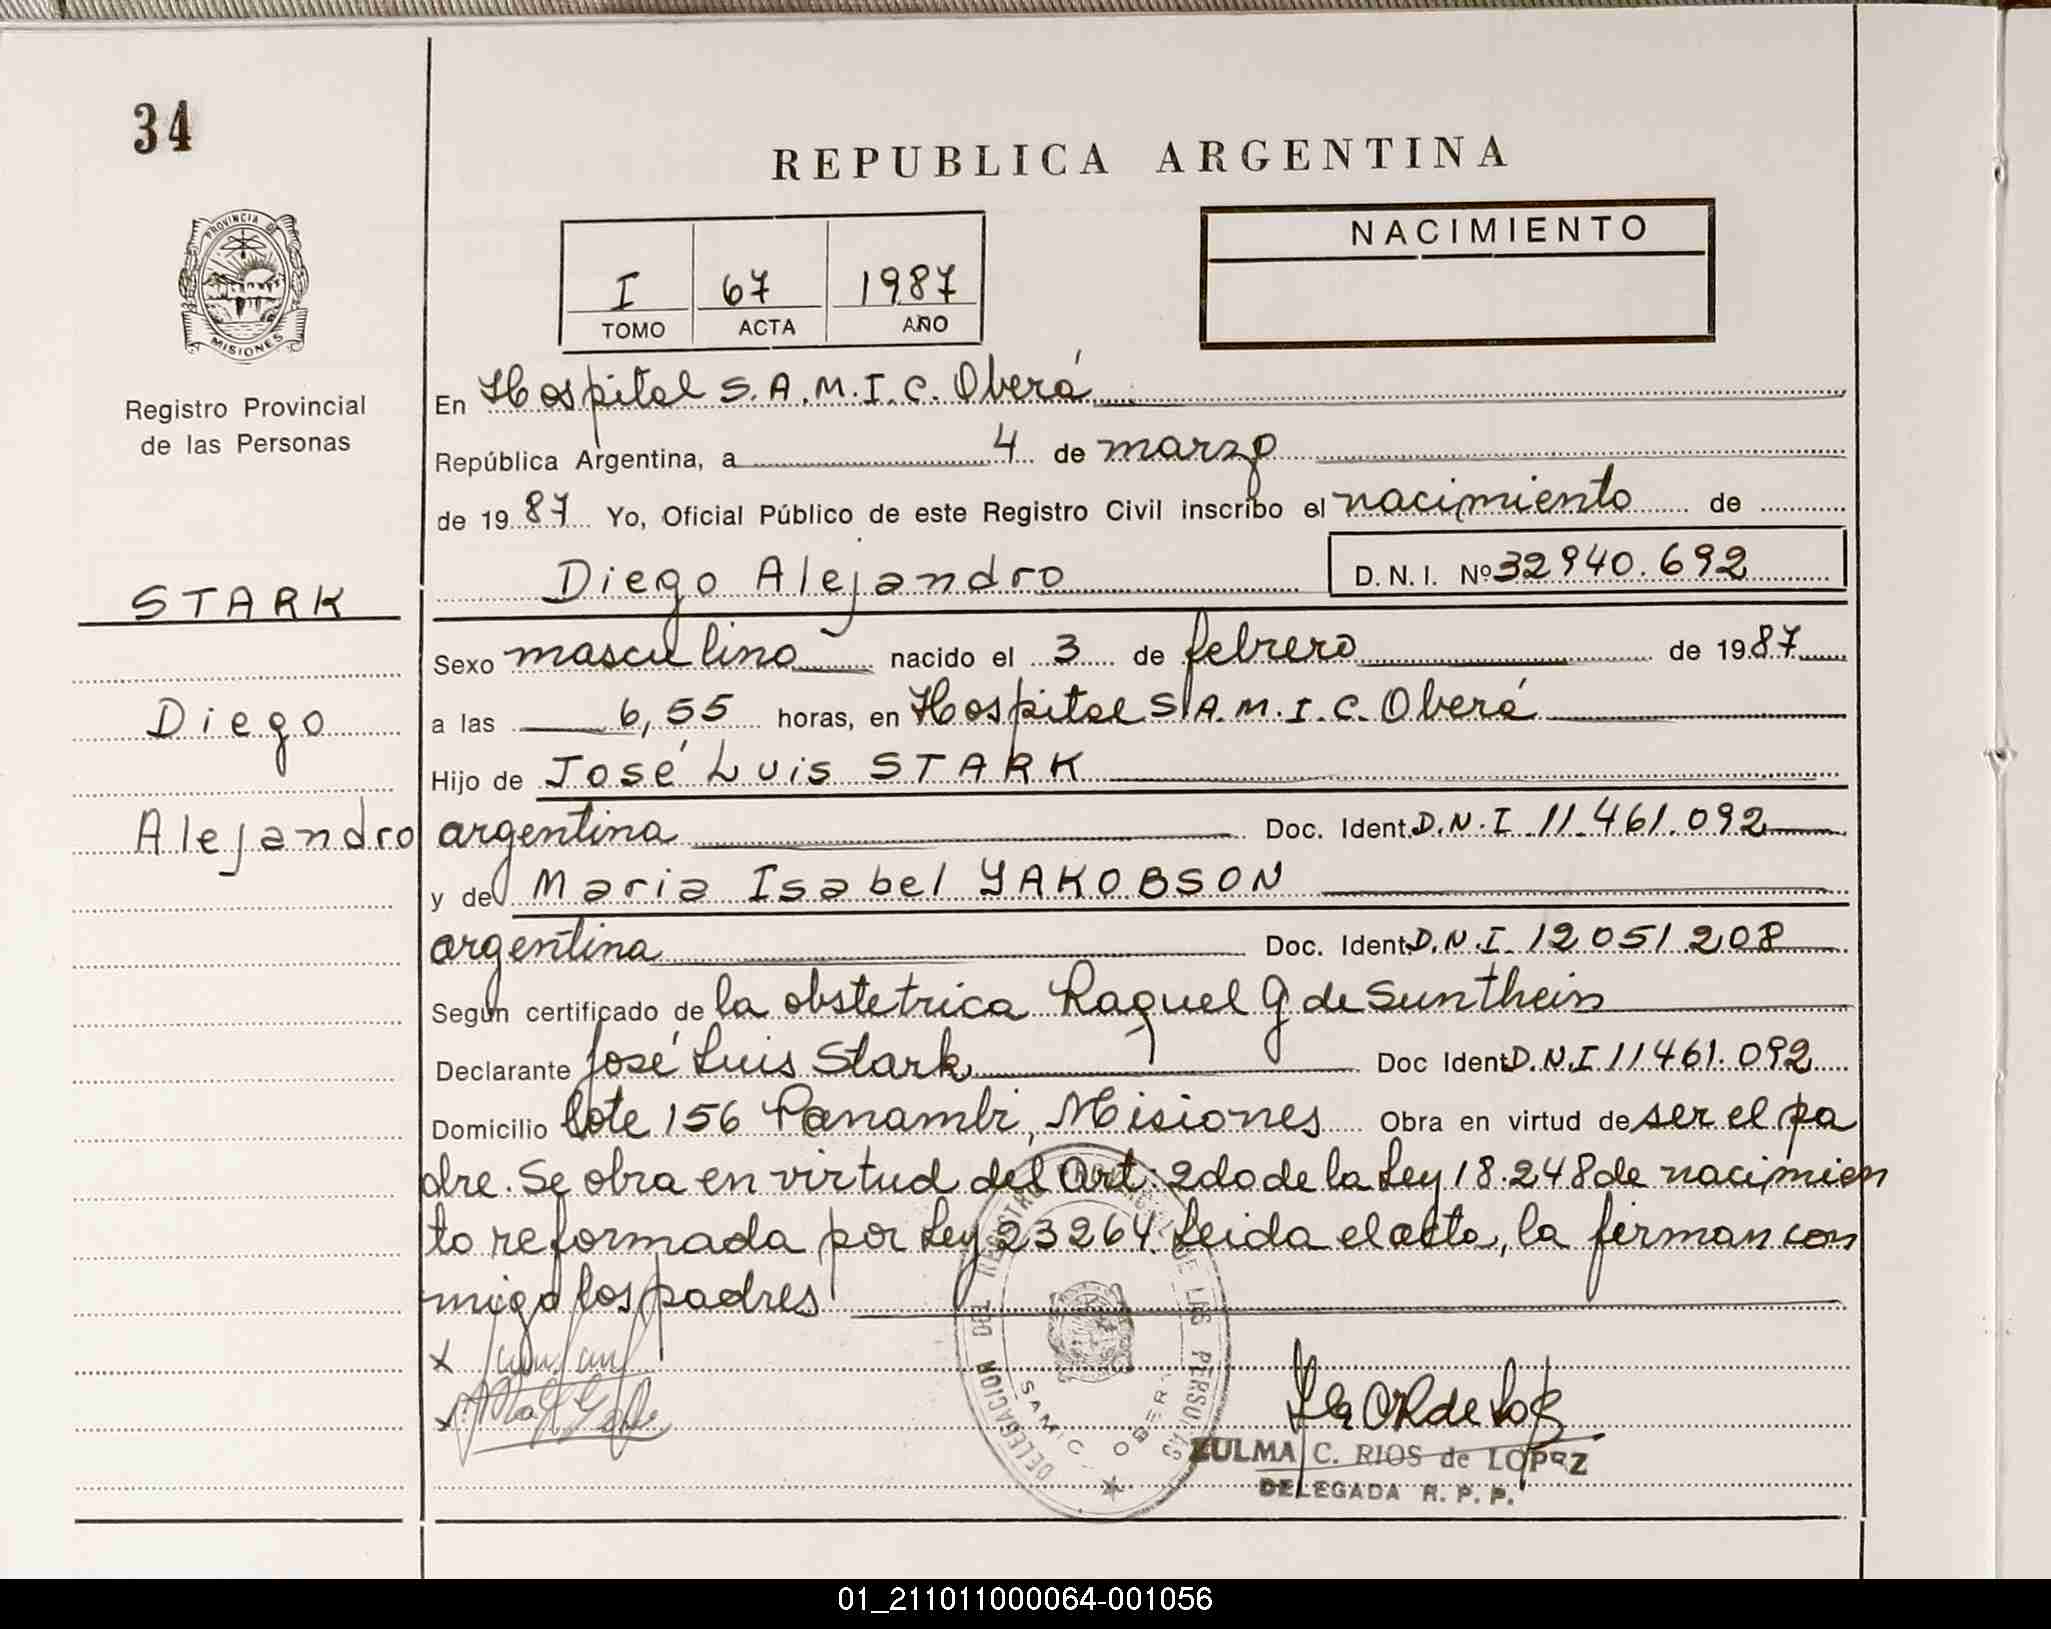 34
REPUBLICA ARGENTINA
PROVINCIA DE
MISIONES
Registro Provincial
de las Personas
I 67 1987
TOMO ACTA AÑO
NACIMIENTO
En Hospital S.A.M.I.C. Oberá
República Argentina, a 4 de marzo
de 1987 Yo, Oficial Público de este Registro Civil inscribo el nacimiento de
Diego Alejandro D.N.I. Nº 32940.692
STARK
Diego
Alejandro
Sexo masculino nacido el 3 de febrero de 1987
a las 6,55 horas, en Hospital S.A.M.I.C. Oberá
Hijo de José Luis STARK
argentina Doc. Ident. D.N.I 11.461.092
y de Maria Isabel YAKOBSON
argentina Doc. Ident. D.N.I. 12051.208
Según certificado de la obstetrica Raquel G de Sunthein
Declarante José Luis Stark Doc Ident. D.N.I 11461.092
Domicilio lote 156 Panambi, Misiones Obra en virtud de ser el pa
dre. Se obra en virtud del Art. 2do de la Ley 18.248 de nacimien
to reformada por Ley 23264. Leida el acta, la firman con
migo los padres
x
x
DELEGACION DEL REGISTRO DE LAS PERSONAS
SAMIC OBERA
ZULMA C. RIOS de LOPEZ
DELEGADA R. P. P.
01_211011000064-001056